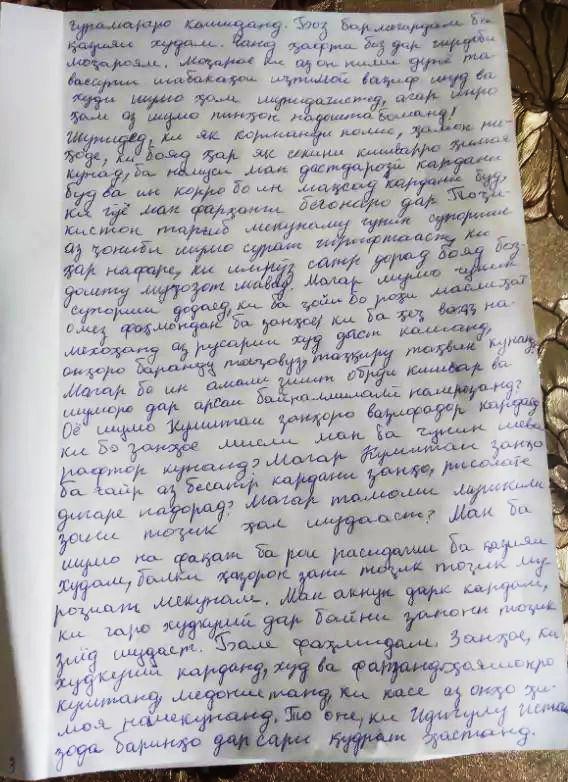 гурамараро кашиданд. Боз бармегардам ба
қазияи худам. Чанд ҳафта боз дар гирдоби
моҷароям. Моҷарое ки аз он ними дунё та-
васути шабакаҳои иҷтимоӣ воқиф шуд ва
худи шумо ҳам шунидагистед, агар инро
ҳам аз шумо пинҳон надошта бошанд!
Шунидед, ки як корманди полис, ҳамон ни-
ҳоде, ки бояд ҳар як сокини кишварро ҳимоя
кунад, ба номуси ман дастдарозӣ кардани
буд ва ин корро бо ин мақсад карданӣ буд,
ки гӯё ман фарҳанги бегонаро дар Тоҷи-
кистон тарғиб мекунаму чунин супориш
аз ҷониби шумо сурат гирифтааст, ки
ҳар нафаре, ки имрӯз сатр дорад бояд боз-
дошту муҷозот шавад. Магар шумо чунин
супориш додаед, ки ба ҷойи бо роҳи маслиҳат
омез фаҳмондан ба занҳое, ки ба ҳеҷ ваҷҳ на-
мехоҳанд аз рӯсарии худ даст кашанд,
онҳоро баранду таҷовуз, таҳқиру тавҳин кунанд?
Магар бо ин амали зишт обрӯи кишвар ва
шуморо дар арсаи байналмилалӣ намерезанд?
Оё шумо Кумитаи занҳоро вазифадор кардаед
ки бо занҳое мисли ман ба чунин шева
рафтор кунанд? Магар Кумитаи занҳо
ба ғайр аз бесатр кардани занҳо, рисолате
дигаре надорад? Магар тамоми мушкили
зани тоҷик ҳал шудааст? Ман ба
шумо на фақат ба рои расидагии ба қазияи
худам, балки ҳазорон зани тоҷик тоҷик му-
роҷиат мекунам. Ман акнун дарк кардам,
ки чаро худкушӣ дар байни занони тоҷик
зиёд шудаст. Бале фаҳмидам. Занҳое, ки
худкушӣ карданд, худ ва фарзандҳояшонро
куштанд, медонистанд, ки касе аз онҳо ҳи-
моя намекунанд. То оне, ки Идигулу
зода баринҳо дар сари қудрат ҳастанд.
3